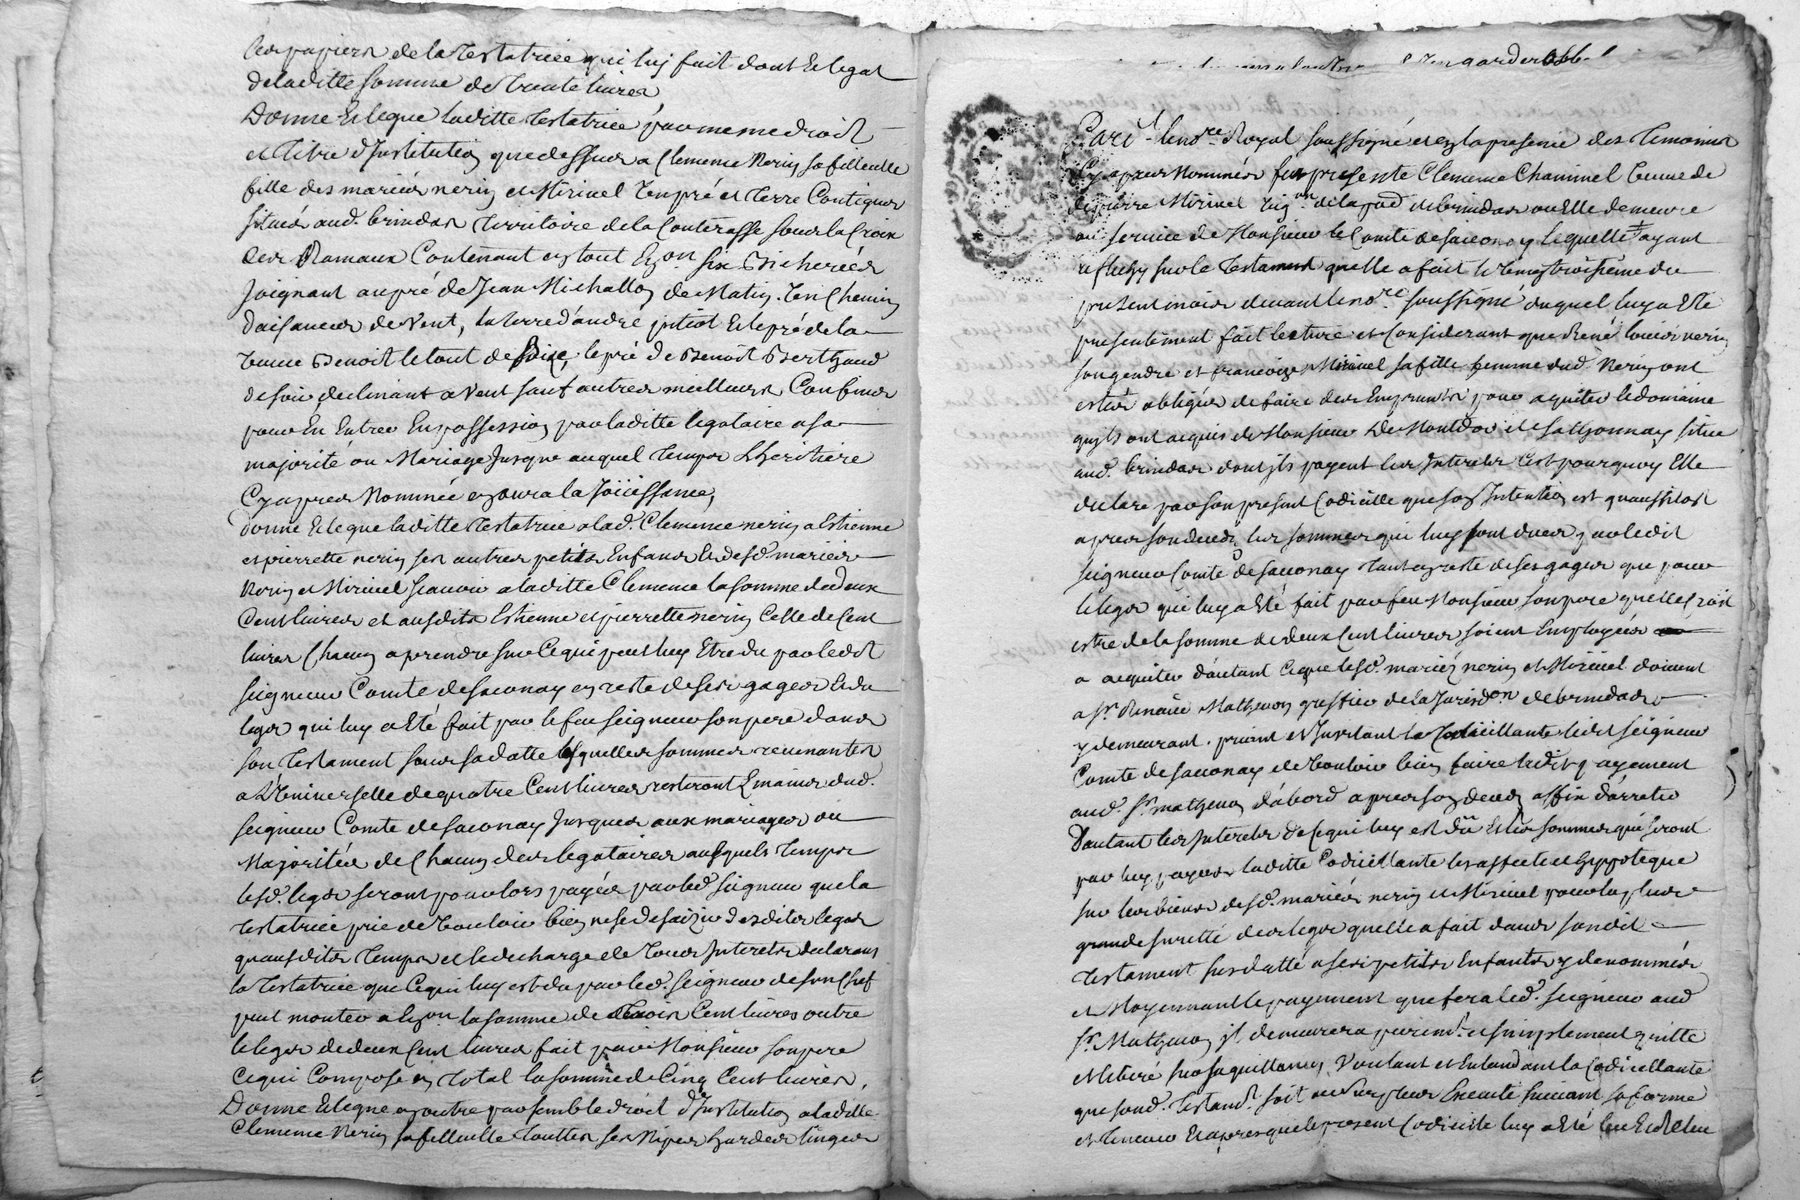 les papiers de la testatrice qui luy fait dont et legat
de laditte somme de trente livres
Donne et legue laditte testatrice par meme droit
et titre d'institution que dessus a Clemence Nerin sa filleulle
fille des mariés nerin et Miricel un pré et terre Contigus
situés aud. brindas territoire de la Conterasse sous la Croix
des Rameaux Contenant en tout Environ six Bicherées
joignant au pré de Jean Michallon de Matin, un Chemin
daisances de Vent, la terre d'andré et le pré de la
veuve Benoit le tout de Bize, le pré de Benoit Berthaud
de soir declinant a Vent sauf autres meilleurs Confins
pour En Entrer En possession par laditte legataire a sa
majorité ou Mariage jusque auquel temps L'heritiere
Cy apres Nommée en aura la Joüissance,
donne et legue laditte testatrice a lad. Clemence nerin a Estienne
et pierrette nerin ses autres petits Enfants et desd. mariés
Nerin et Miricel scavoir a laditte Clemence la somme de deux
Cent livres et ausdits Estienne et pierrette nerin Celle de Cent
livres Chacun a prendre sur Ce qui peut luy Etre du par ledit
seigneur Comte de saconay en reste de ses gages et du
legs qui luy a Eté fait par le feu seigneur son pere dans
son testament sous sa datte lesquelles sommes revenantes
a L'Universelle de quatre Cent livres resteront Es mains dud.
seigneur Comte de saconay jusques aux mariages ou
Majoritée de Chacun des legataires auxquels temps
lesd. legs seront pour lors payés par led. seigneur que la
testatrice prie de vouloir bien ne se desaisir desdites legs
qu'ausdits temps et le decharge de tous jnterets declarant
la testatrice que Ce qui luy est du par led. seigneur de son Chef
peut monter a Environ la somme de trois Cent livres outre
le legs de deux Cent livres fait par Monsieur son pere
Ce qui Compose en total la somme de Cinq Cent livres,
Donne et legue en outre par semblable droit d'institution a laditte
Clemence Nerin sa filleulle touttes ses Nipes hardes linges
Pardt. le nore. Royal soussigné et en la presence des temoins
Cy apres Nommés fut presente Clemence Chaminel veuve de
de pierre Miricel de brindas ou Elle demeure
au service de Monsieur le Comte de saconay Lequelle ayant
reflechy sur le testament quelle a fait le vingt troisieme du
present mois devant le nore. soussigné duquel luy a Eté
presentement fait lecture et Considerant que René louis nerin
son gendre et françoise Miricel sa fille femme dud. Nerin ont
estés obligés de faire des Emprunts pour aquiter le domaine
qu'ils ont acquis de Monsieur De Montdor et de sathonnay situé
aud. brindas dont jls payent les jnterets C'est pourquoy Elle
declare par son present Codicille que son Intention est qu'aussitost
apres son decés les sommes qui luy sont dues par ledit
seigneur Comte de saconay tant en reste de ses gages que pour
le legs qui luy a Eté fait par feu Monsieur son pere quelle Croit
estre de la somme de deux Cent livres soient Employées
a acquiter d'autant Ce que lesd. mariés nerin et Miricel doivent
a sr. Renaue Mathevon greffier de la Jurisdon. de brindas
y demeurant. priant et Invitant la Codicillante ledit seigneur
Comte de saconay de vouloir bien faire ledit payement
aud. sr. mathevon d'abord apres son deces affin d'arreter
d'autant les jnterets de Ce qui luy est dû Et les sommes qui seront
par luy payées laditte Codicillante les affecte et hypoteque
sur les biens desd. mariés nerin et Miricel pour la plus
grande suretté des legs quelle a fait dans son dit
testament susdatté a ses petits Enfants y denommés
et Moyennant le payement que fera led. seigneur aud
sr. Mathevon jl demeurera purement et simplement quitte
et liberé sur sa quittance, Voulant et Entendant la Codicillante
que sond. testament soit au surplus Executé suivant sa forme
et teneur Et apres que le present Codicille luy a Eté lue Et relue